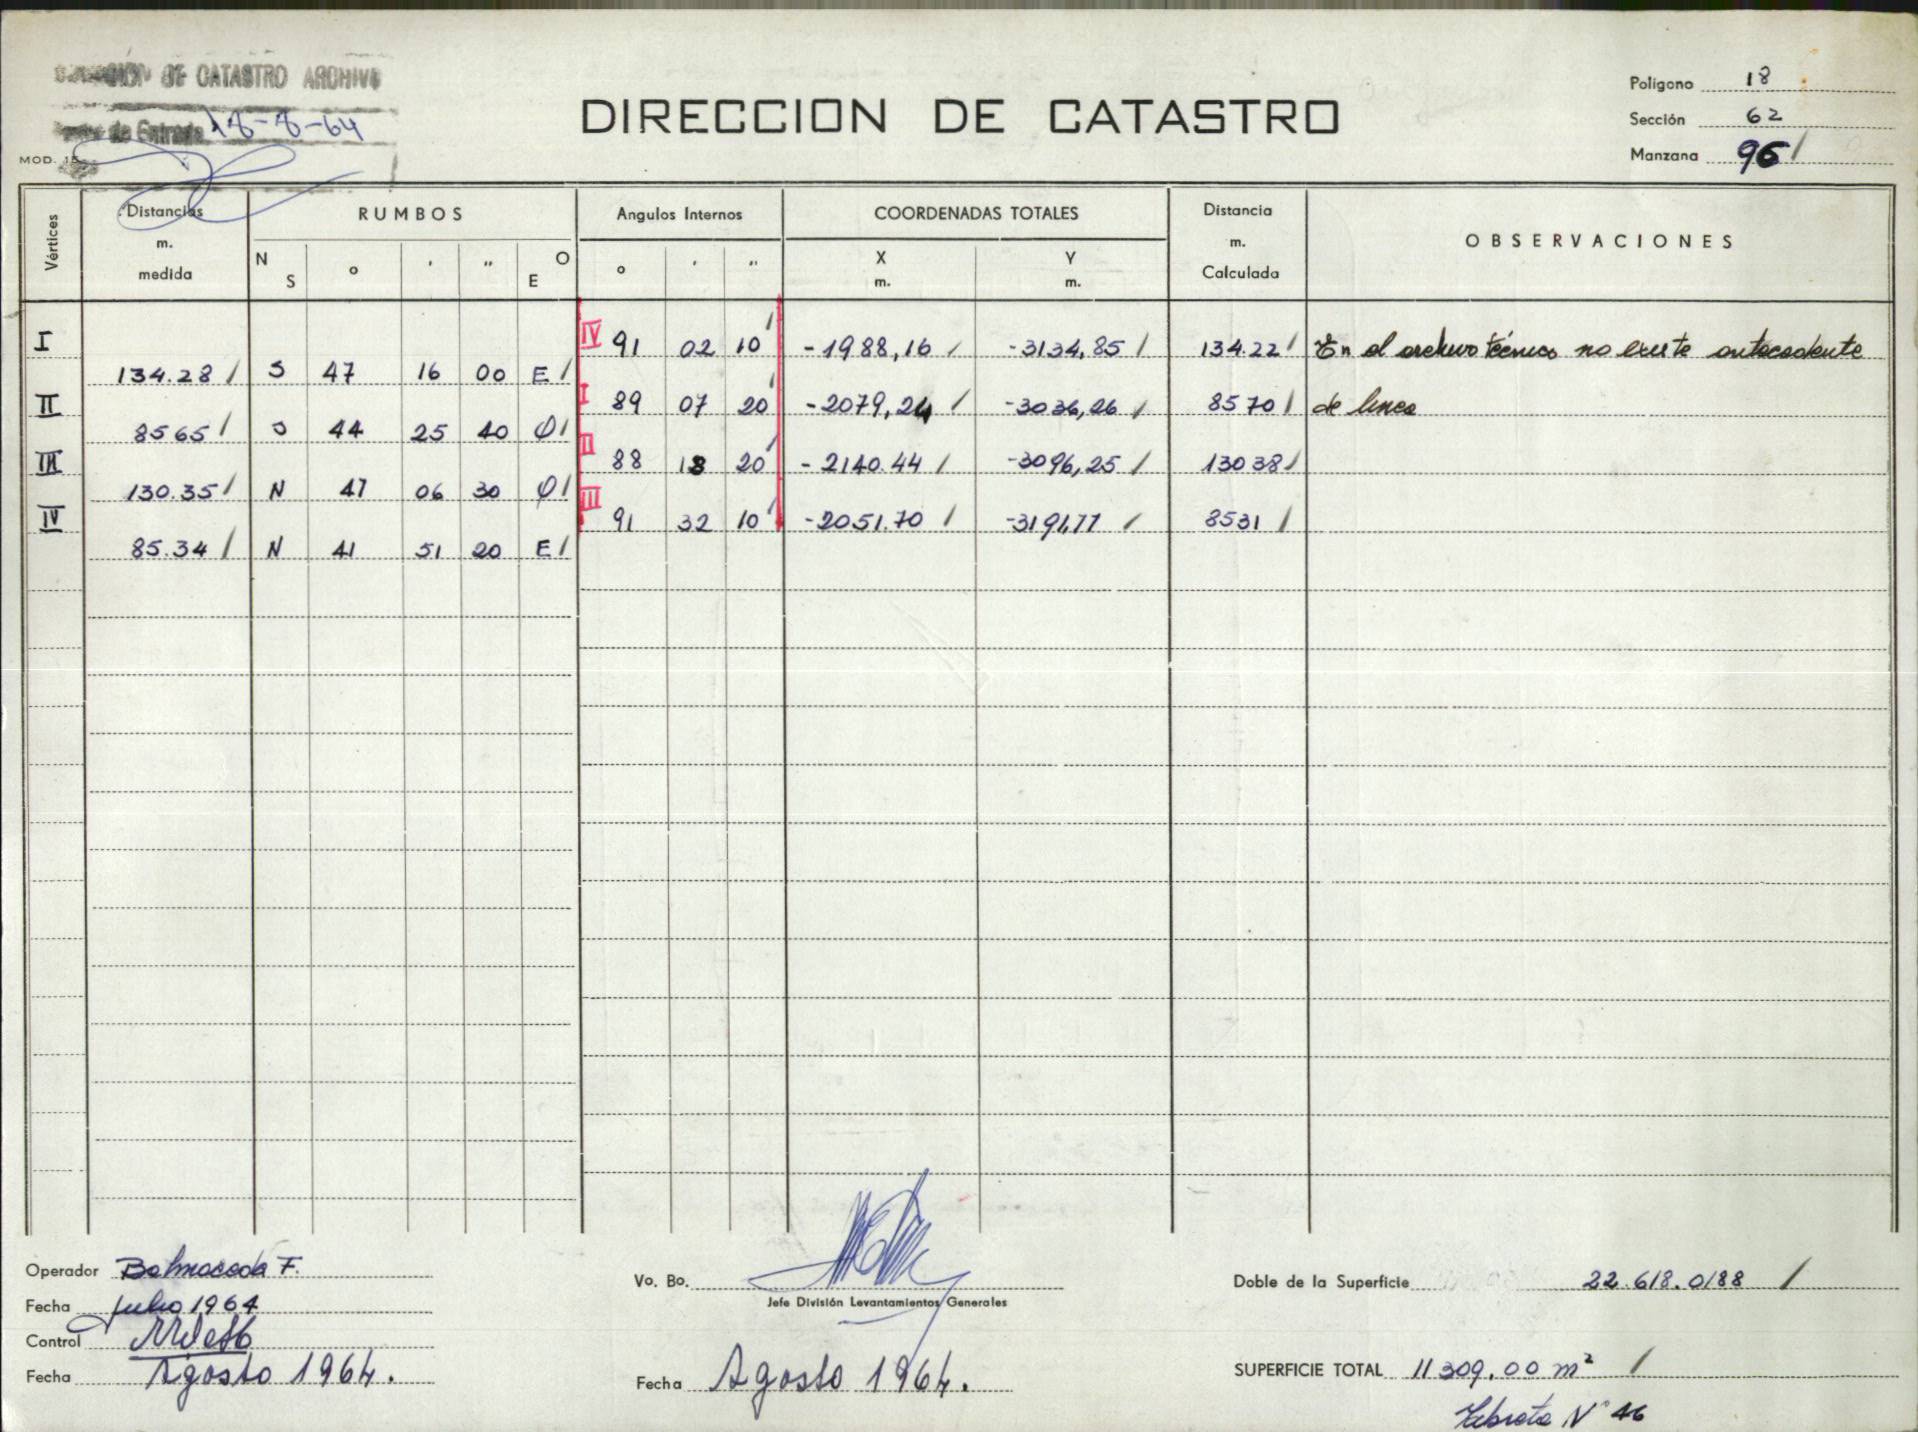 DE CATASTRO ARCHIVO
de Entrada 18-8-64
MOD. 15
DIRECCION DE CATASTRO
Polígono 18
Sección 62
Manzana 96 /
Vértices
Distancias m. medida
RUMBOS
N S ° ' " O E
Angulos Internos
° ' "
COORDENADAS TOTALES
X m. Y m.
Distancia m. Calculada
OBSERVACIONES
I IV 91 02 10 / -1988,16 / -3134,85 / 134.22 / En el archivo técnico no existe antecedente
134.28 / S 47 16 00 E /
II I 89 07 20 / -2079,24 / -3036,26 / 85 70 / de linea
85 65 / S 44 25 40 O /
III II 88 18 20 / -2140.44 / -3096,25 / 130 38 /
130.35 / N 47 06 30 O /
IV III 91 32 10 / -2051.70 / -3191,77 / 85 31 /
85.34 / N 41 51 20 E /
Operador Balmaceda F.
Fecha Julio 1964
Control
Fecha Agosto 1964.
Vo. Bo.
Jefe División Levantamientos Generales
Fecha Agosto 1964.
Doble de la Superficie 22.618.0188 /
SUPERFICIE TOTAL 11 309.00 m² /
Libreta N° 46